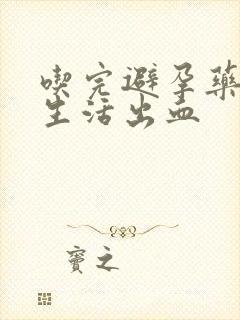 喫完避孕藥
生活出血
竇之